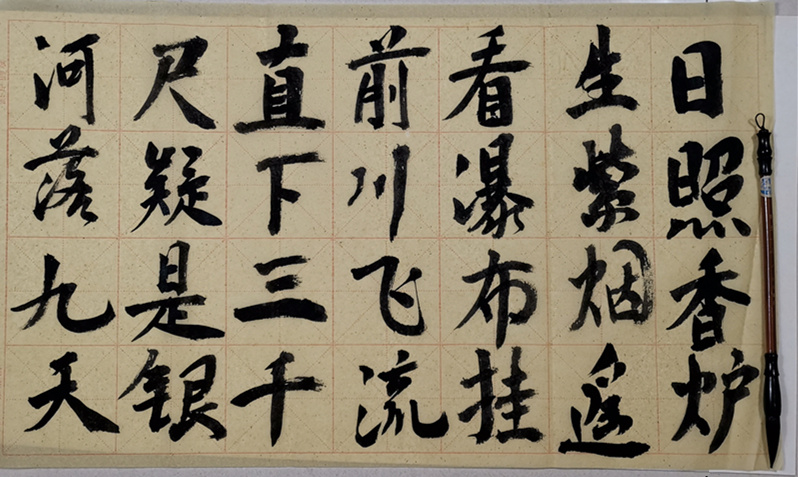 日照香炉
生紫烟遥
看瀑布挂
前川飞流
直下三千
尺疑是银
河落九天